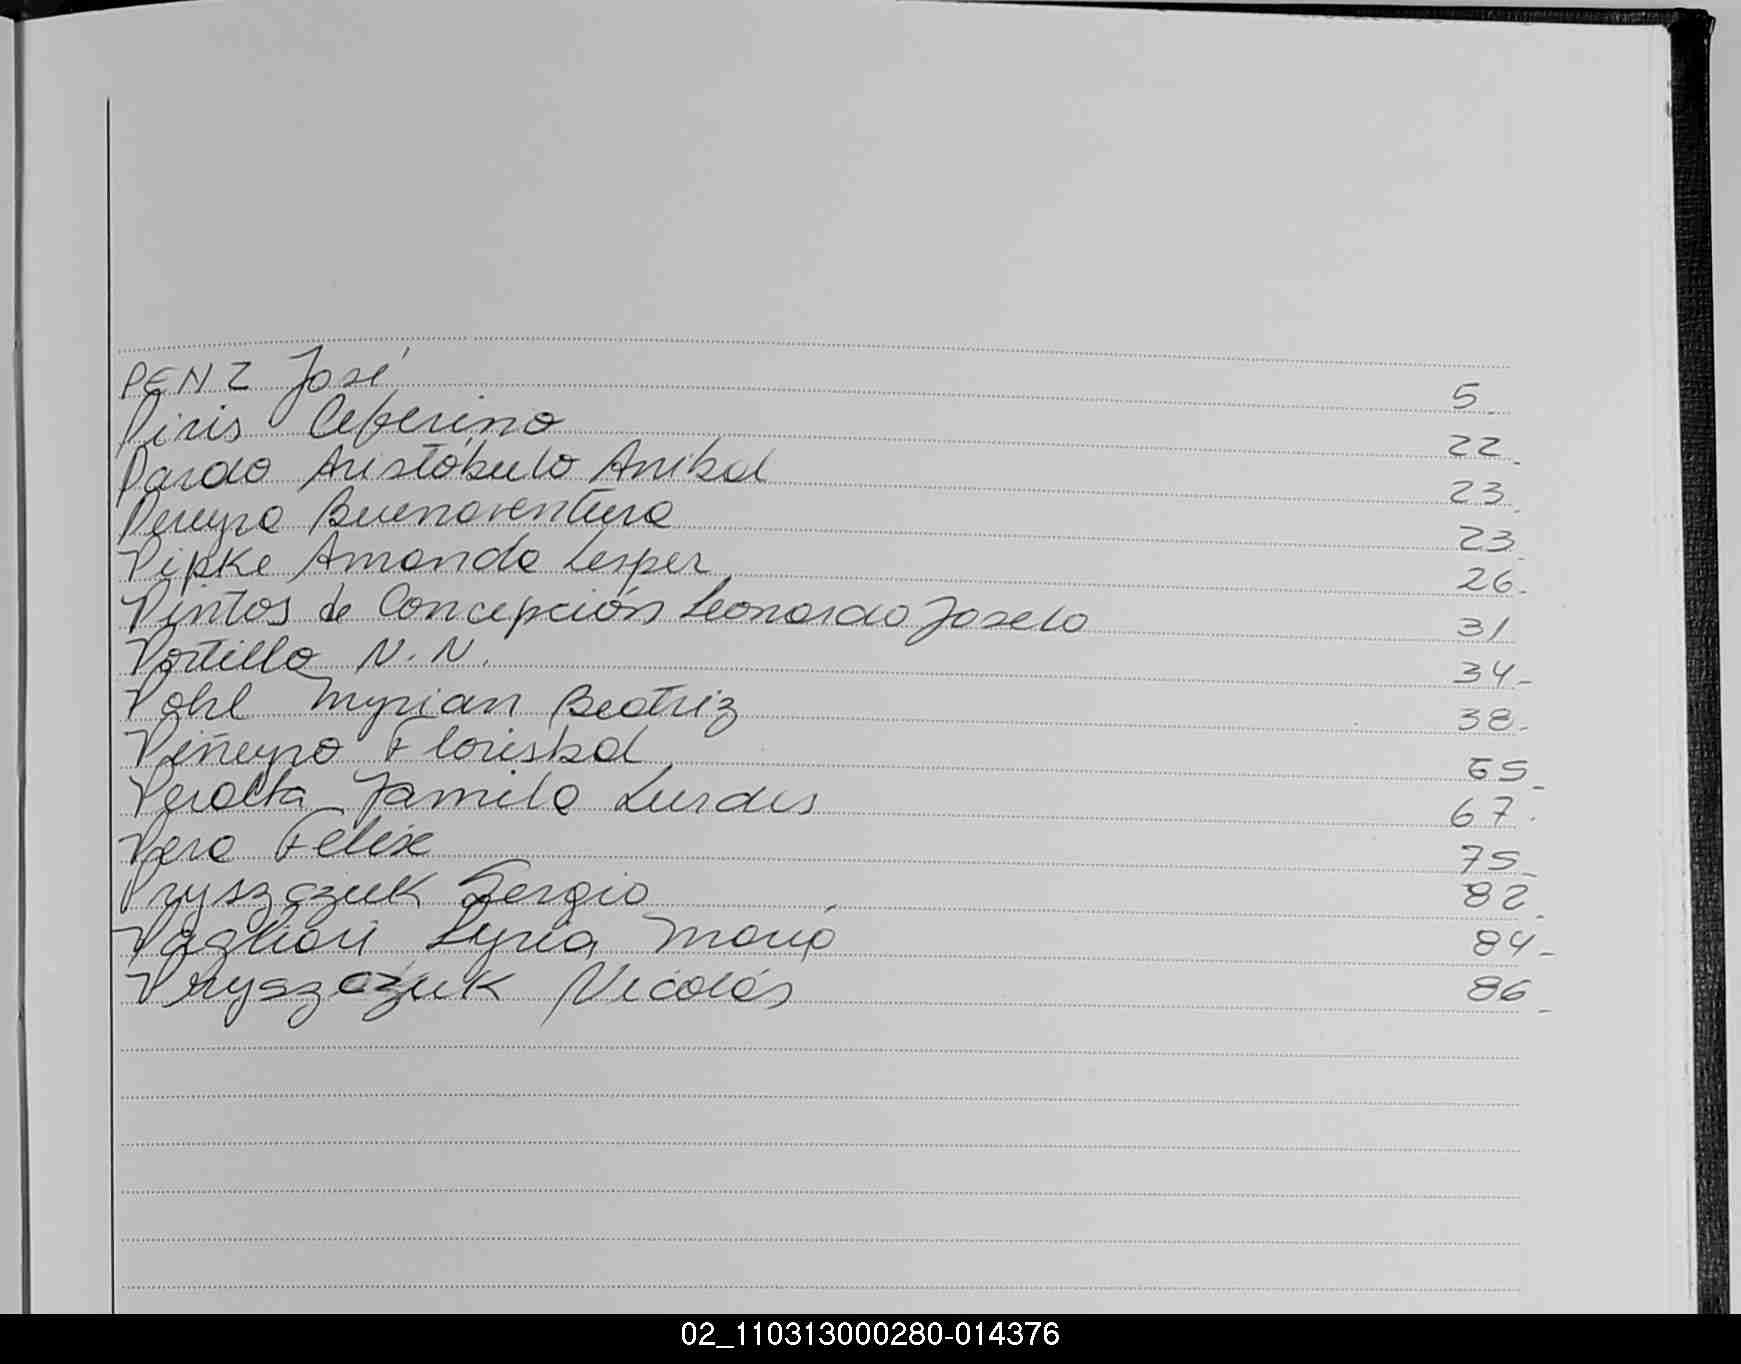 PENZ José 5.
Piris Ceferino 22.
Pardo Aristóbulo Anibal 23.
Pereyra Buenaventura 23.
Pipke Amanda Lesper 26.
Pintos de Concepción Leonardo Joselo 31
Portillo N.N. 34-
Pohl Myrian Beatriz 38-
Piñeyro Florisbal 65-
Peralta Jamila Lurdes 67.
Pera Félix 75-
Pryszczuk Sergio 82.
Pagliari Lyria María 84-
Pryszczuk Nicolás 86-
02_110313000280-014376